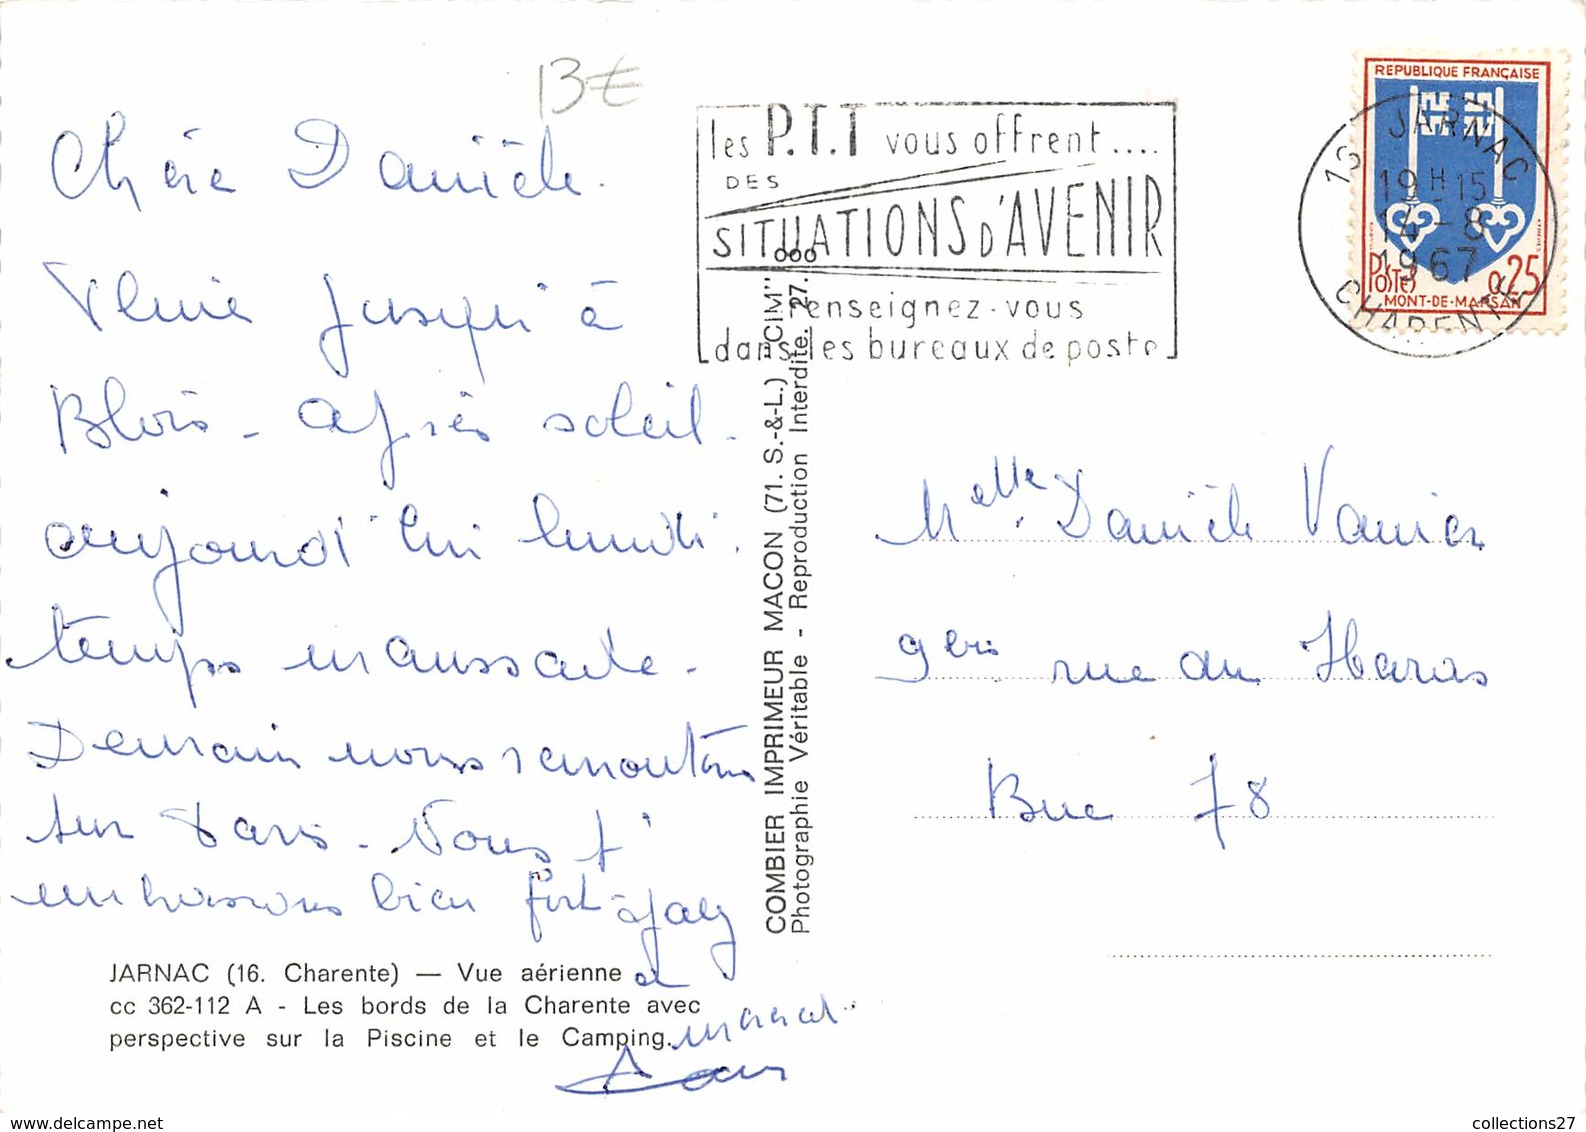 13€
Chère Danièle.
Pluie jusqu'à
Blois - après soleil.
aujourd'hui lundi.
temps maussade.
Demain nous remontons
sur Paris. Nous t'
embrassons bien fort
et
marcel.
les P.T.T vous offrent....
DES
SITUATIONS D'AVENIR
renseignez-vous
dans les bureaux de poste
REPUBLIQUE FRANÇAISE
POSTES 0,25
MONT-DE-MARSAN
16 JARNAC
19H15
14-8
1967
CHARENTE
COMBIER IMPRIMEUR MACON (71. S.-&-L.) "CIM"
Photographie Véritable - Reproduction Interdite. 27.000
Melle. Danièle Vanier
9 bis rue du Haras
Buc 78
JARNAC (16. Charente) — Vue aérienne
cc 362-112 A - Les bords de la Charente avec
perspective sur la Piscine et le Camping.
collections27